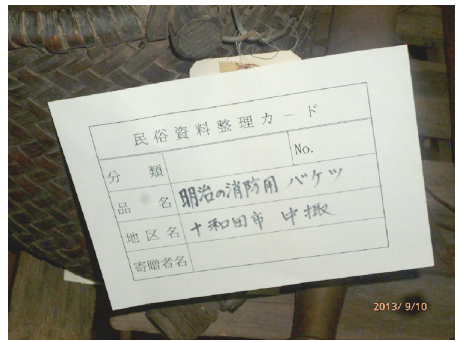 民俗資料整理カード
分類 No.
品名 明治の消防用 バケツ
地区名 十和田市 中掫
寄贈者名
2013/ 9/10